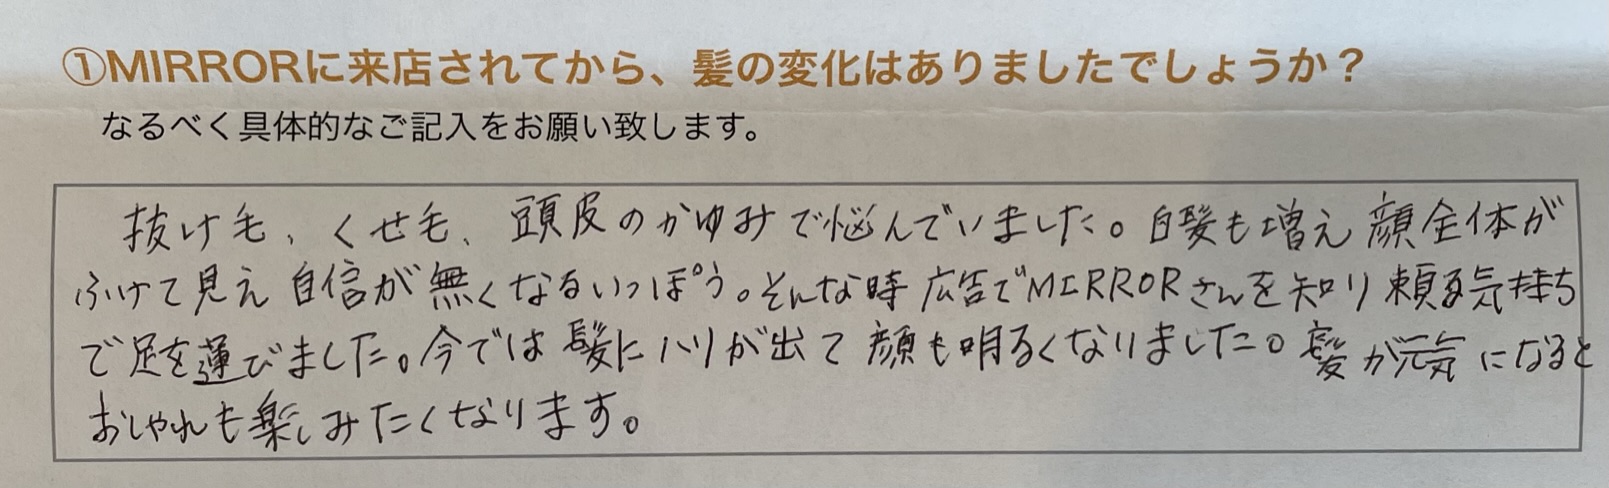 ①MIRRORに来店されてから、髪の変化はありましたでしょうか？
なるべく具体的なご記入をお願い致します。
抜け毛、くせ毛、頭皮のかゆみで悩んでいました。白髪も増え顔全体が
ふけて見え自信が無くなるいっぽう。そんな時広告でMIRRORさんを知り頼る気持ち
で足を運びました。今では髪にハリが出て顔も明るくなりました。髪が元気になると
おしゃれも楽しみたくなります。